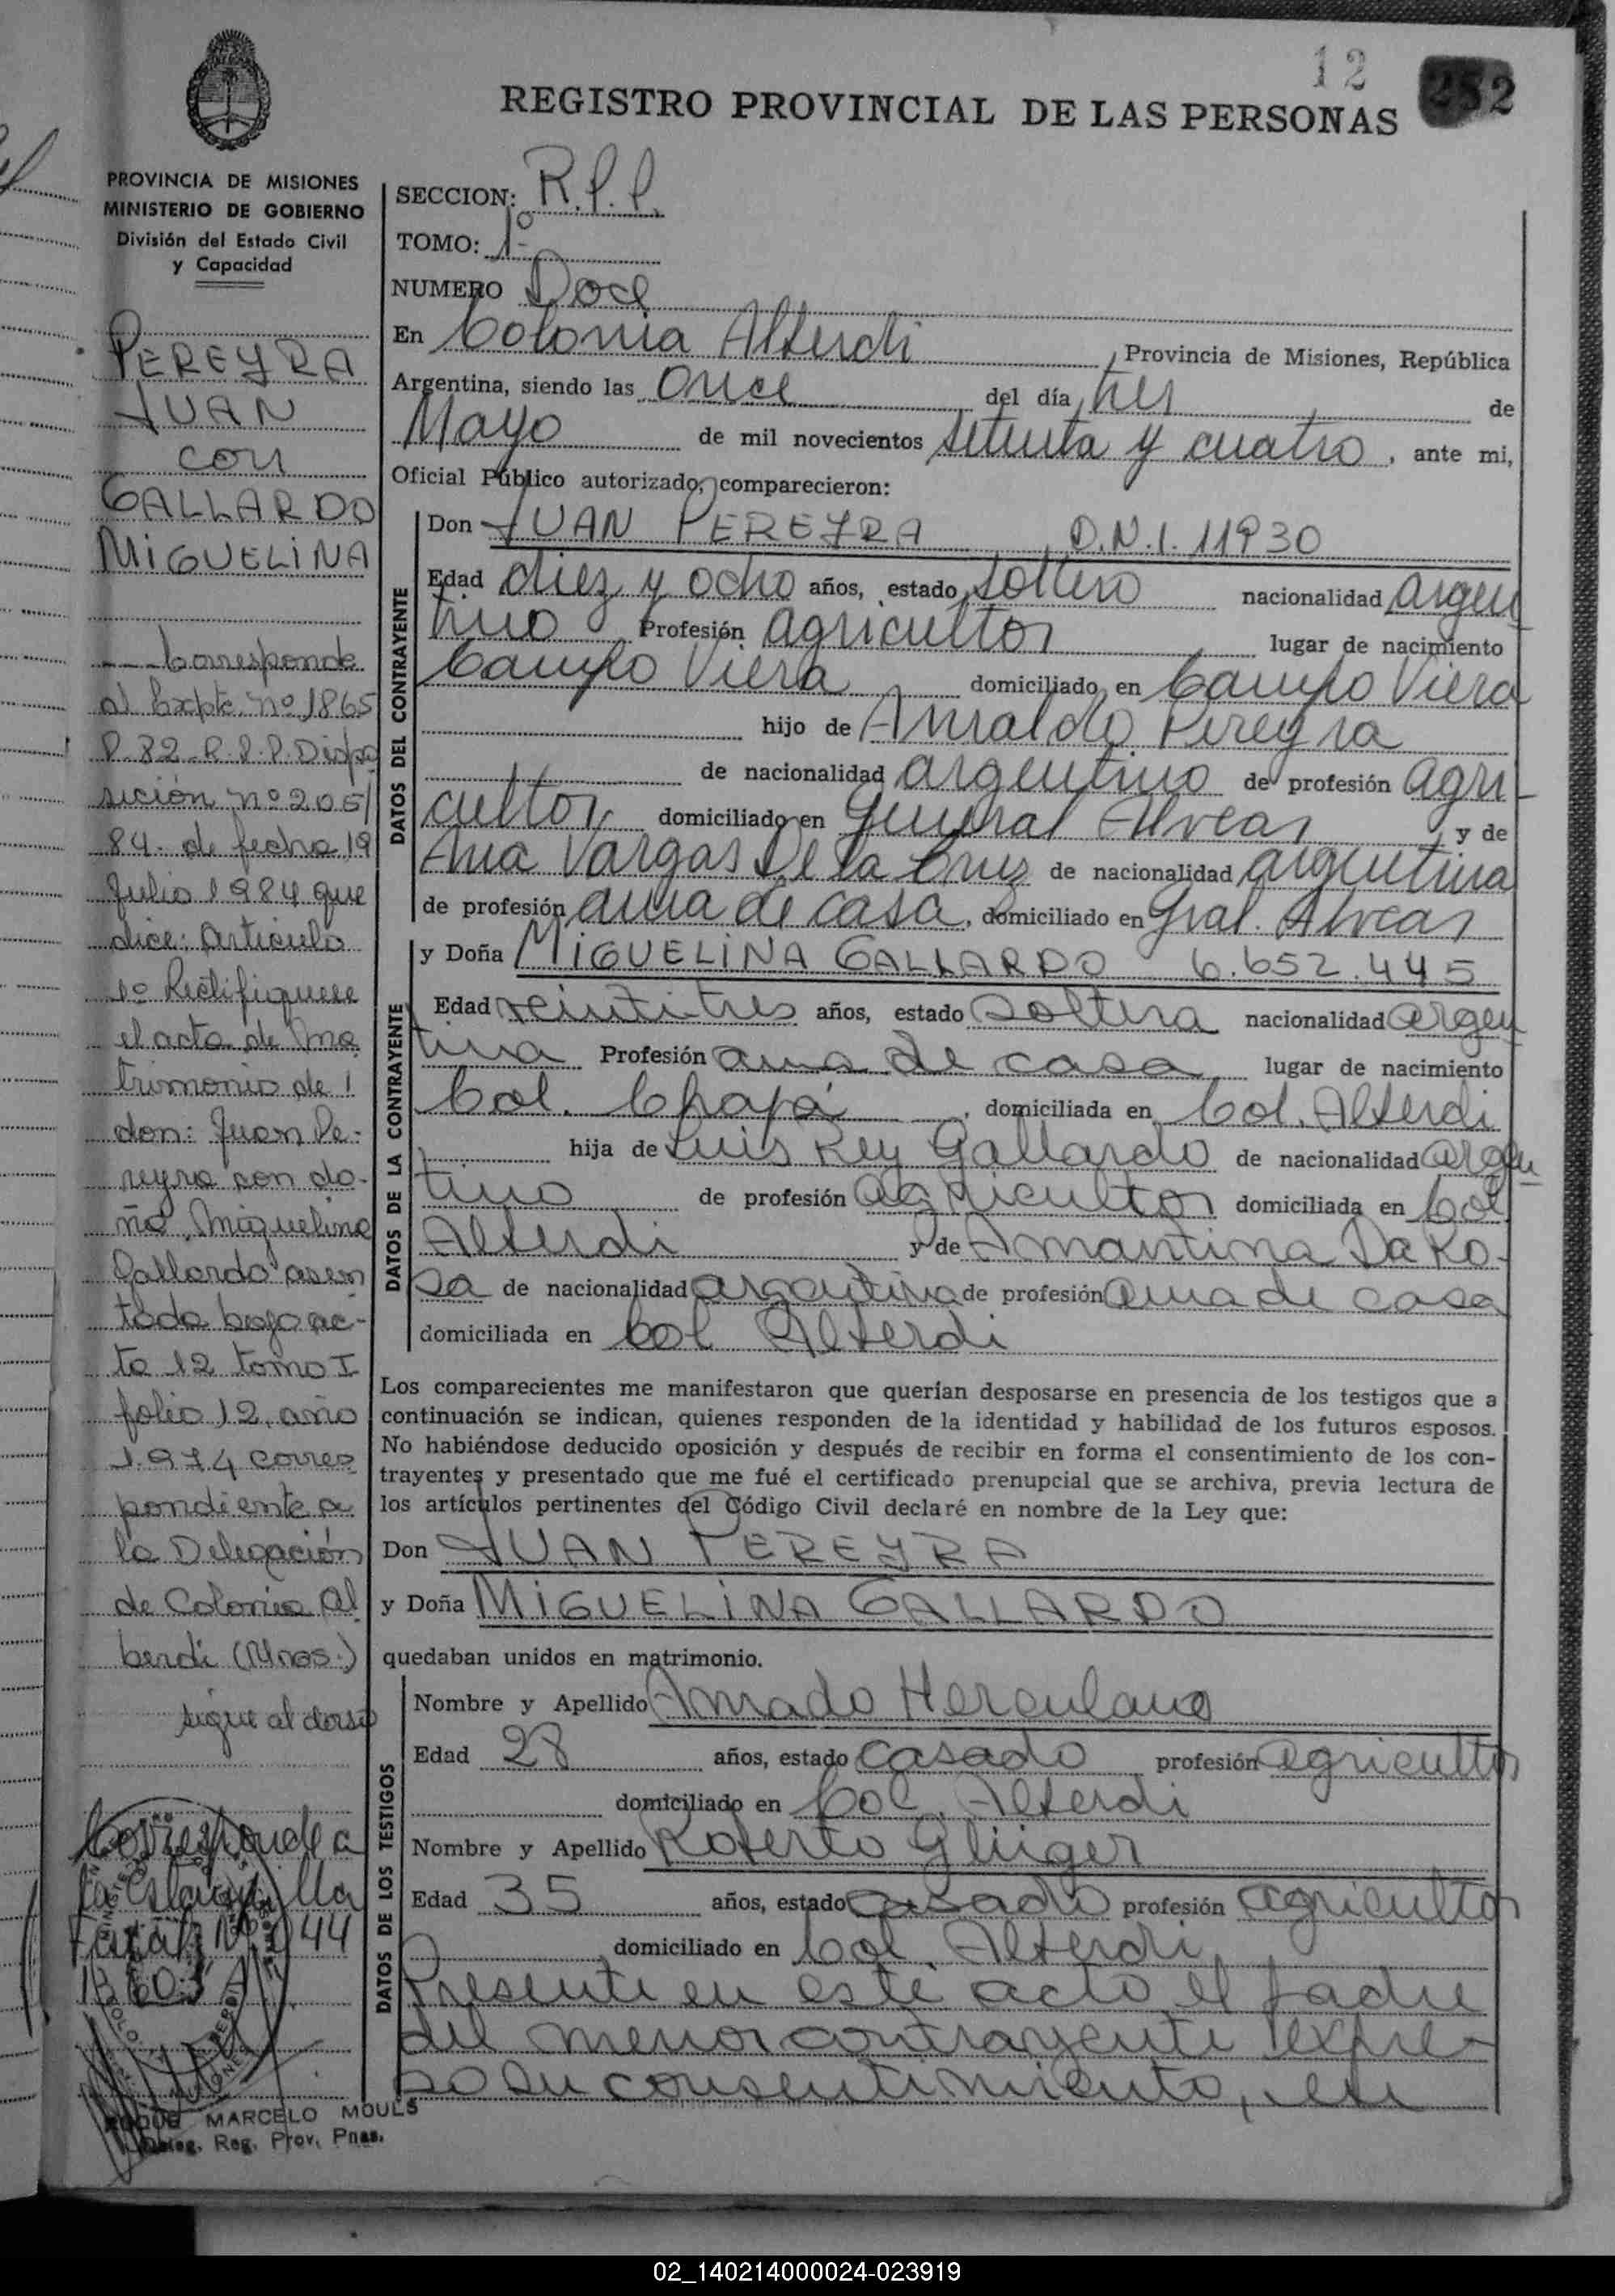 12
252
REGISTRO PROVINCIAL DE LAS PERSONAS
PROVINCIA DE MISIONES
MINISTERIO DE GOBIERNO
División del Estado Civil
y Capacidad
PEREYRA
JUAN
con
GALLARDO
MIGUELINA
Corresponde
al Expte nº 1865
P. 82 - R.P.P. Dispo
sición nº 205/
84. de fecha 19
Julio 1984 que
dice: Artículo
1º Rectifiquese
el acta de ma
trimonio de
don: Juan Pe-
reyra con do-
ña Miguelina
Gallardo asen
tada bajo ac-
ta 12 tomo I
folio 12, año
1.974 corres
pondiente a
la Delegación
de Colonia Al
berdi (Mnes.)
sigue al dorso
Corresponde a
la Estampilla
Fiscal Nº 044
MARCELO MOULS
Deleg. Reg. Prov. Pnas.
SECCION: R.P.P.
TOMO: 1º
NUMERO Doce
En Colonia Alberdi, Provincia de Misiones, República
Argentina, siendo las Once del día tres de
Mayo de mil novecientos setenta y cuatro, ante mi,
Oficial Público autorizado, comparecieron:
DATOS DEL CONTRAYENTE
Don JUAN PEREYRA D.N.I. 11930
Edad diez y ocho años, estado soltero nacionalidad argen
tino Profesión agricultor lugar de nacimiento
Campo Viera domiciliado en Campo Viera
hijo de Arnaldo Pereyra
de nacionalidad argentino de profesión agri-
cultor, domiciliado en General Alvear, y de
Ana Vargas De la Cruz de nacionalidad argentina
de profesión ama de casa, domiciliado en Gral. Alvear
DATOS DE LA CONTRAYENTE
y Doña MIGUELINA GALLARDO 6.652.445
Edad veintitres años, estado soltera nacionalidad argen
tina Profesión ama de casa lugar de nacimiento
Col. Chapá, domiciliada en Col. Alberdi
hija de Luis Rey Gallardo de nacionalidad argen
tino de profesión agricultor domiciliada en Col
Alberdi y de Amantina Da Ro-
sa de nacionalidad argentina de profesión ama de casa
domiciliada en Col Alberdi
Los comparecientes me manifestaron que querían desposarse en presencia de los testigos que a
continuación se indican, quienes responden de la identidad y habilidad de los futuros esposos.
No habiéndose deducido oposición y después de recibir en forma el consentimiento de los con-
trayentes y presentado que me fué el certificado prenupcial que se archiva, previa lectura de
los artículos pertinentes del Código Civil declaré en nombre de la Ley que:
Don JUAN PEREYRA
y Doña MIGUELINA GALLARDO
quedaban unidos en matrimonio.
DATOS DE LOS TESTIGOS
Nombre y Apellido Amado Herculano
Edad 28 años, estado casado profesión agricultor
domiciliado en Col. Alberdi
Nombre y Apellido Roberto Glüger
Edad 35 años, estado casado profesión agricultor
domiciliado en Col Alberdi
Presente en este acto el padre
del menor contrayente expre-
so su consentimiento, en
02_140214000024-023919